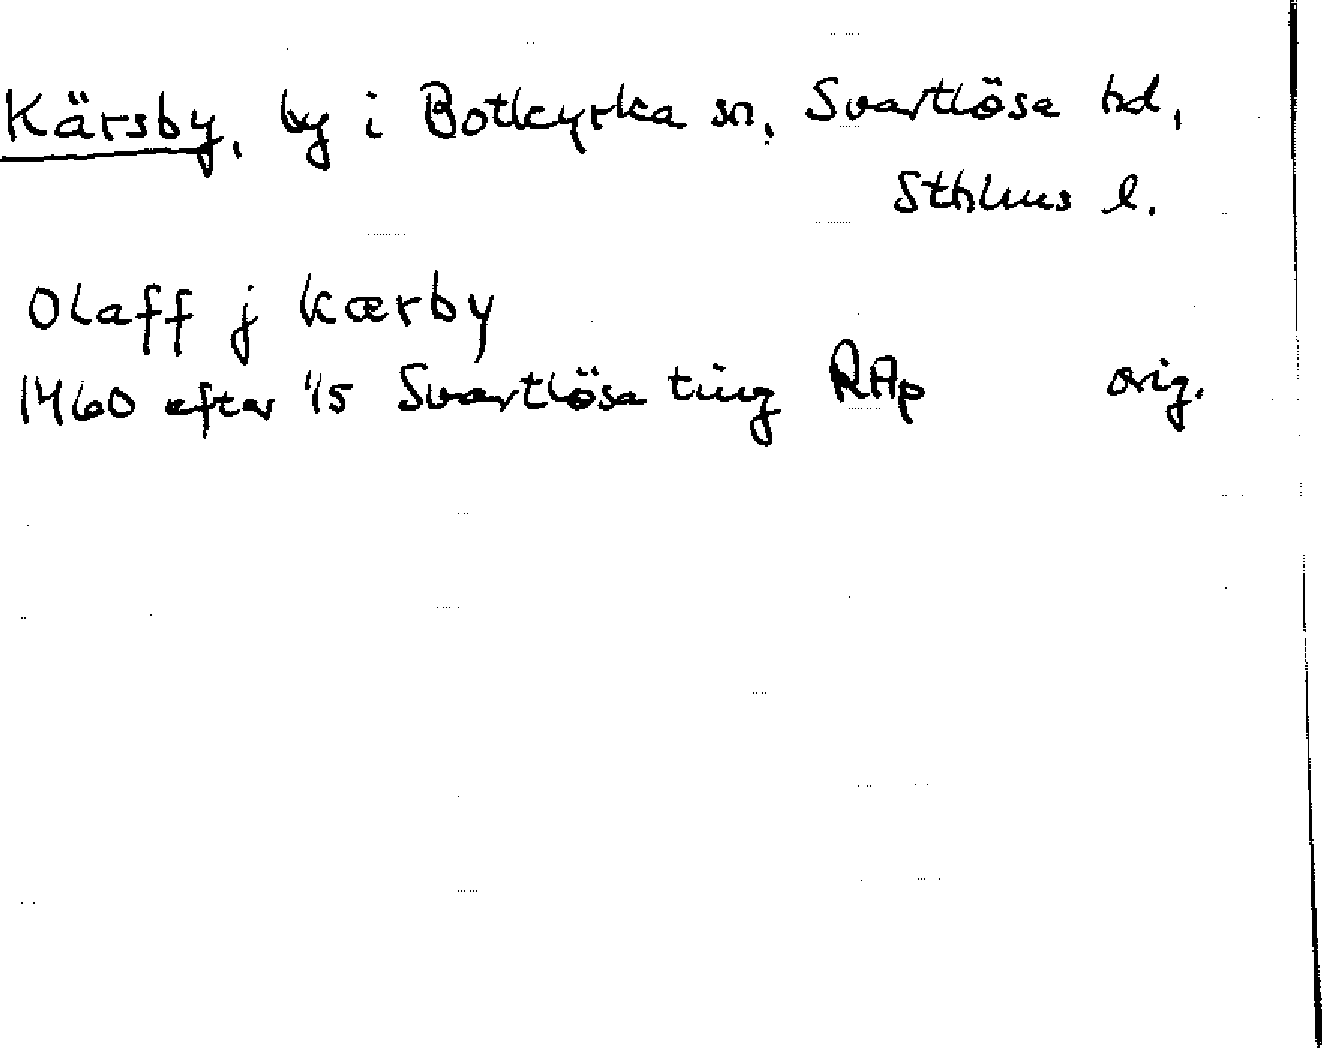 Kärsby, by i Botkyrka sn, Svartlösa hd,
Sthlms l.
Olaff j kærby
1460 efter 1/5 Svartlösa ting RAp orig.